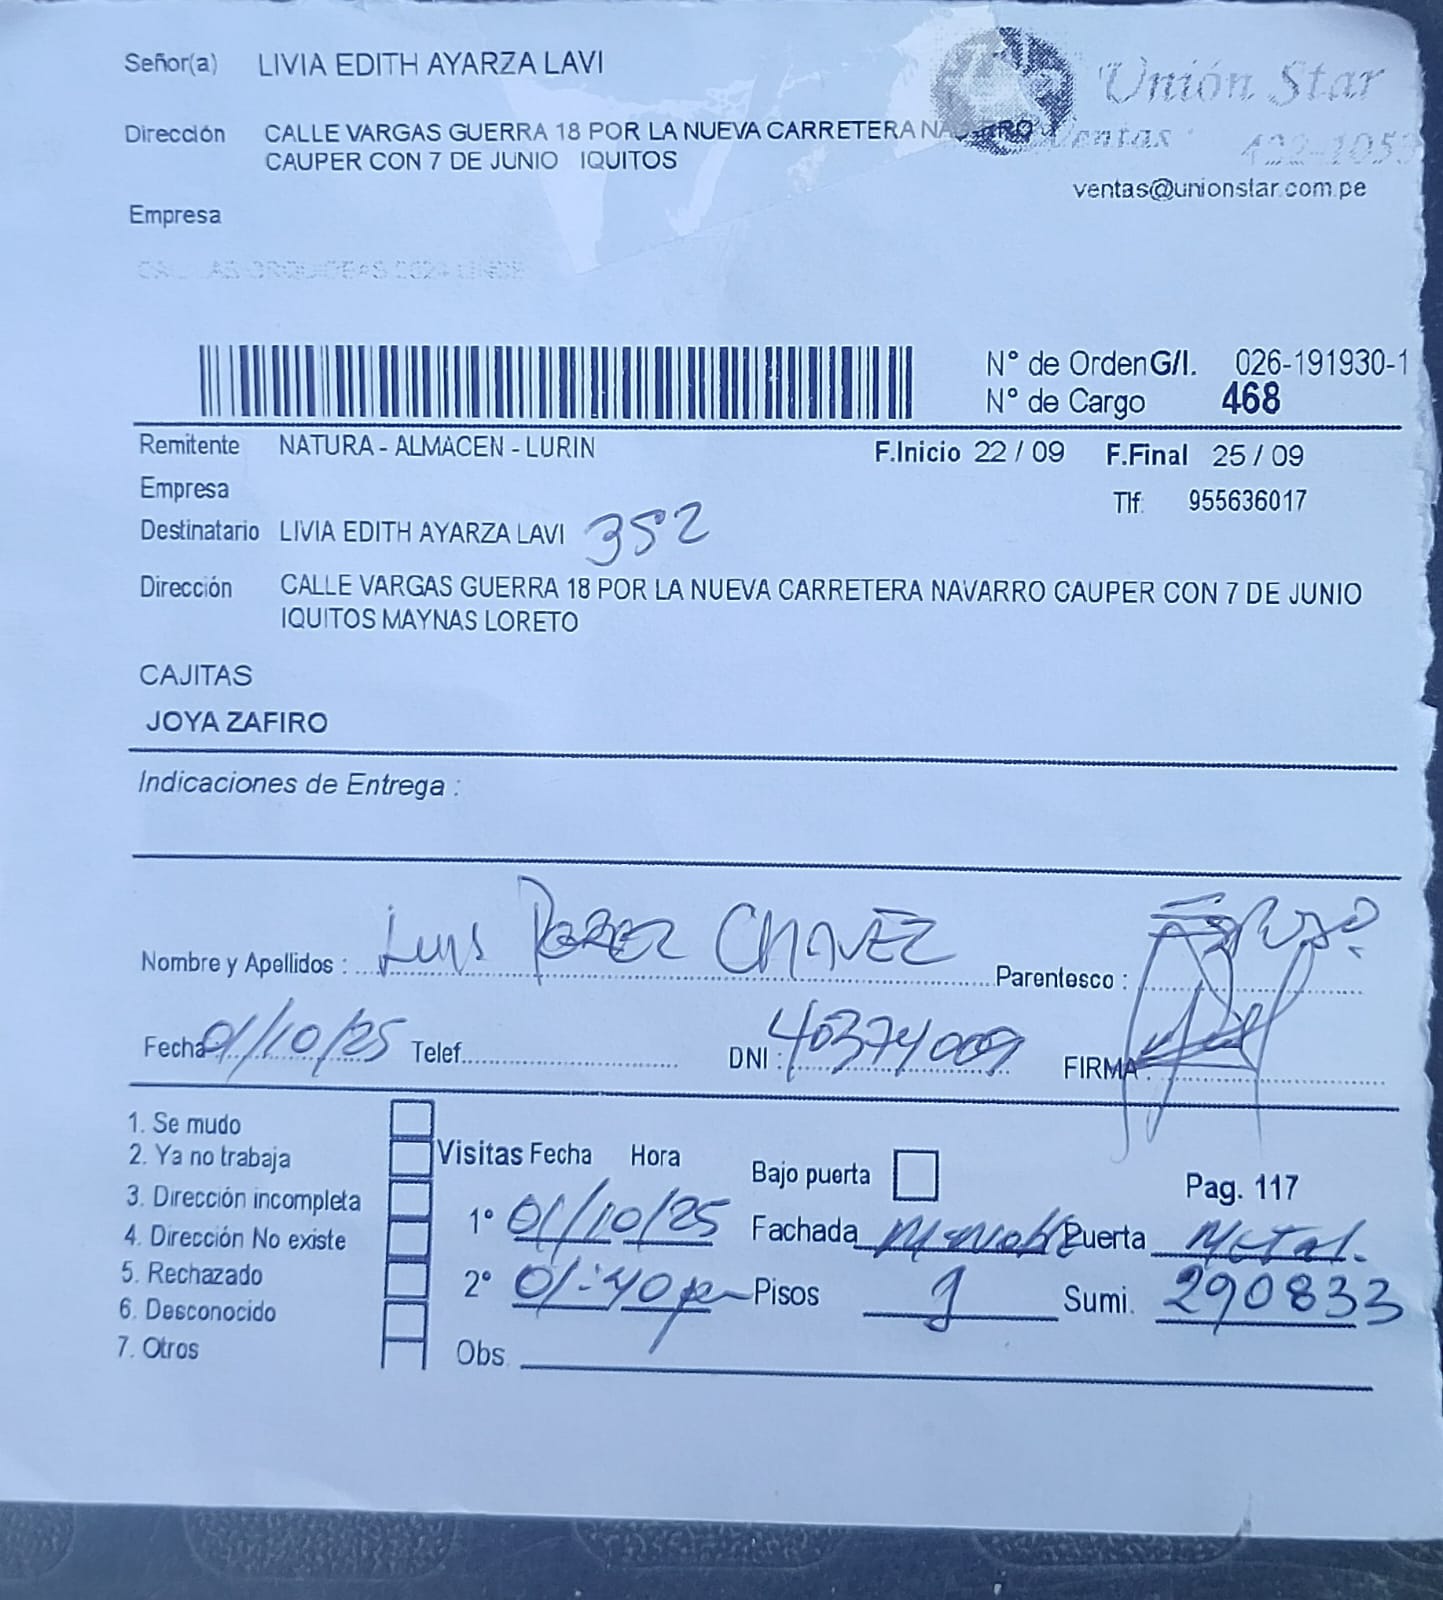 Señor(a) LIVIA EDITH AYARZA LAVI
Unión Star
Dirección CALLE VARGAS GUERRA 18 POR LA NUEVA CARRETERA NAVARRO
Ventas 422-1053
CAUPER CON 7 DE JUNIO IQUITOS
ventas@unionstar.com.pe
Empresa
N° de Orden G/I. 026-191930-1
N° de Cargo 468
Remitente NATURA - ALMACEN - LURIN F.Inicio 22 / 09 F.Final 25 / 09
Empresa Tlf. 955636017
Destinatario LIVIA EDITH AYARZA LAVI 352
Dirección CALLE VARGAS GUERRA 18 POR LA NUEVA CARRETERA NAVARRO CAUPER CON 7 DE JUNIO
IQUITOS MAYNAS LORETO
CAJITAS
JOYA ZAFIRO
Indicaciones de Entrega :
Nombre y Apellidos : Luis PEREZ CHAVEZ Parentesco : Esposo
Fecha 01/10/25 Telef. DNI : 40374009 FIRMA :
1. Se mudo
2. Ya no trabaja Visitas Fecha Hora Bajo puerta Pag. 117
3. Dirección incompleta 1° 01/10/25 Fachada Puerta Metal.
4. Dirección No existe
5. Rechazado 2° 01:40 pm Pisos 1 Sumi. 290833
6. Desconocido
7. Otros Obs.